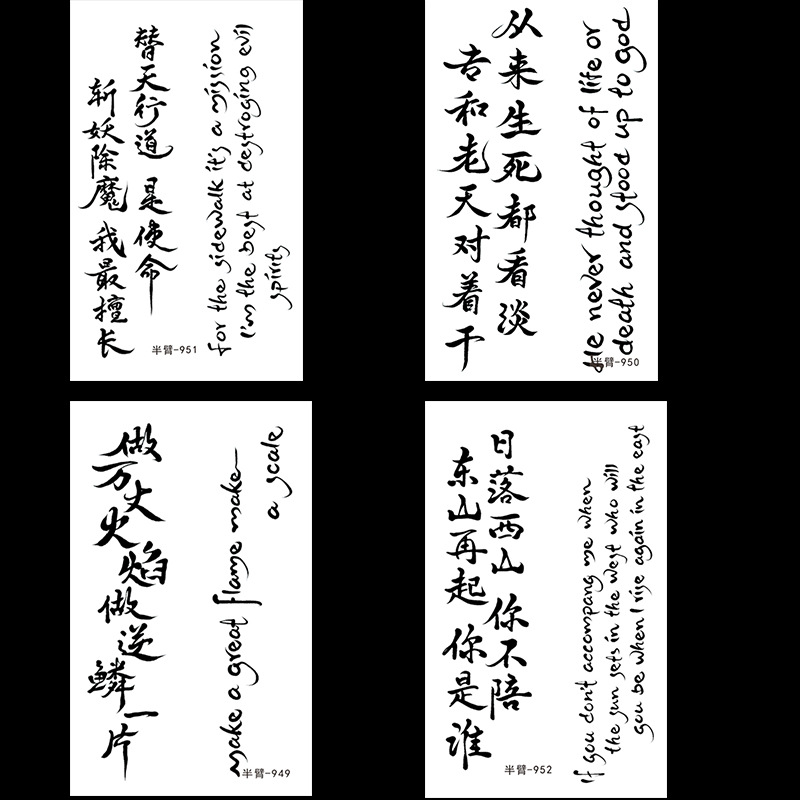 替天行道 是使命
斩妖除魔 我最擅长
for the sidewalk it's a mission
I'm the best at destroging evil
spirits
半臂-951
从来生死都看淡
专和老天对着干
He never thought of life or
death and stood up to god
半臂-950
做万丈火焰做逆鳞一片
make a great flame make
a scale
半臂-949
日落西山 你不陪
东山再起 你是谁
if you don't accompang me when
the sun sets in the west who will
you be when I rise again in the east
半臂-952